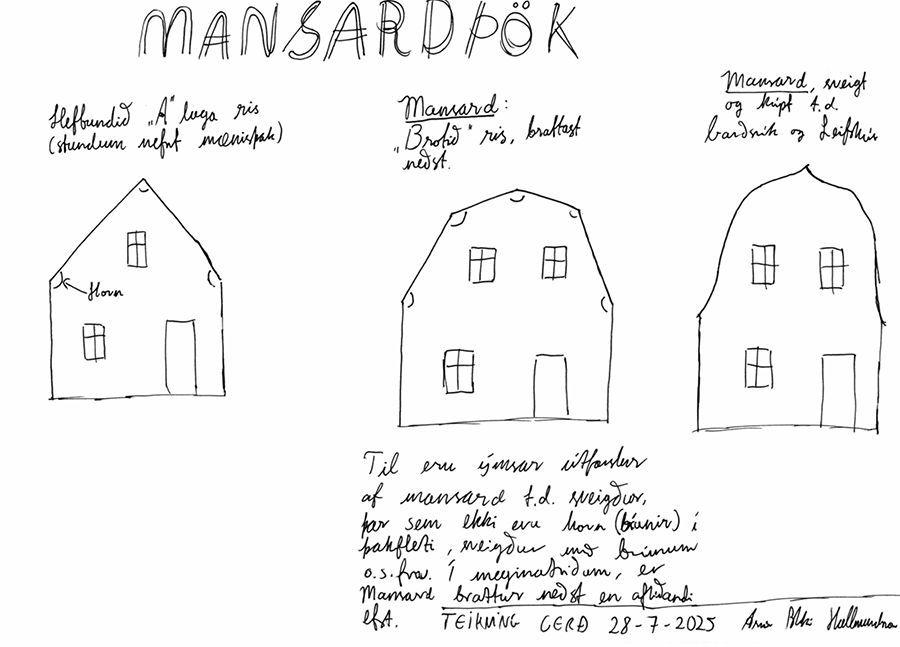 MANSARDÞÖK
Hefbundið „A" laga ris
(stundum nefnt mænisþak)
Horn
Mansard:
„Brotið" ris, brattast
neðst.
Mansard, sveigt
og kúpt t.d.
barðsvik og
Til eru ýmsar útfærslur
af mansard t.d. sveigður,
þar sem ekki eru horn (brúnir) í
þakfleti, sveigður með brúnum
o.s.frv. Í meginatriðum, er
Mansard brattur neðst en aflíðandi
efst.
TEIKNING GERÐ 28-7-2025